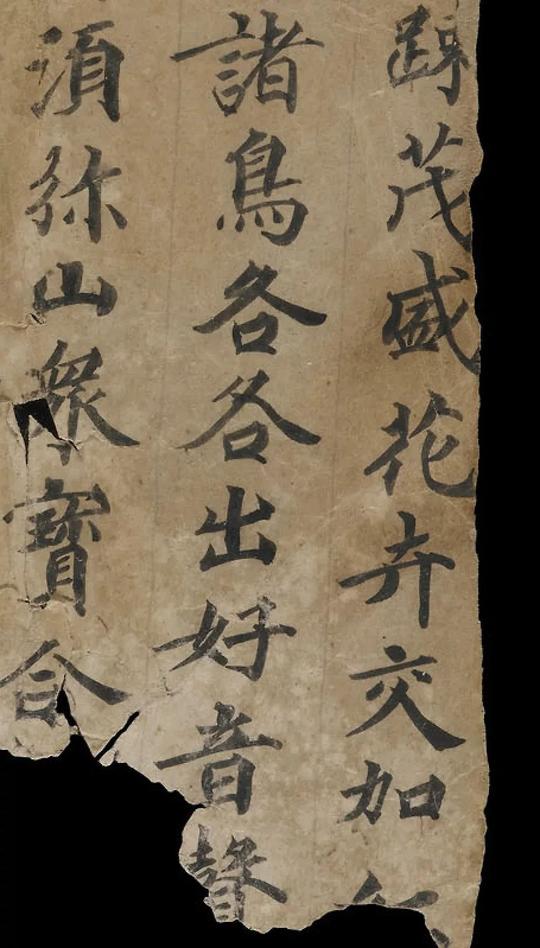 茂盛花卉交加
諸鳥各各出好音聲
湏弥山衆寶合